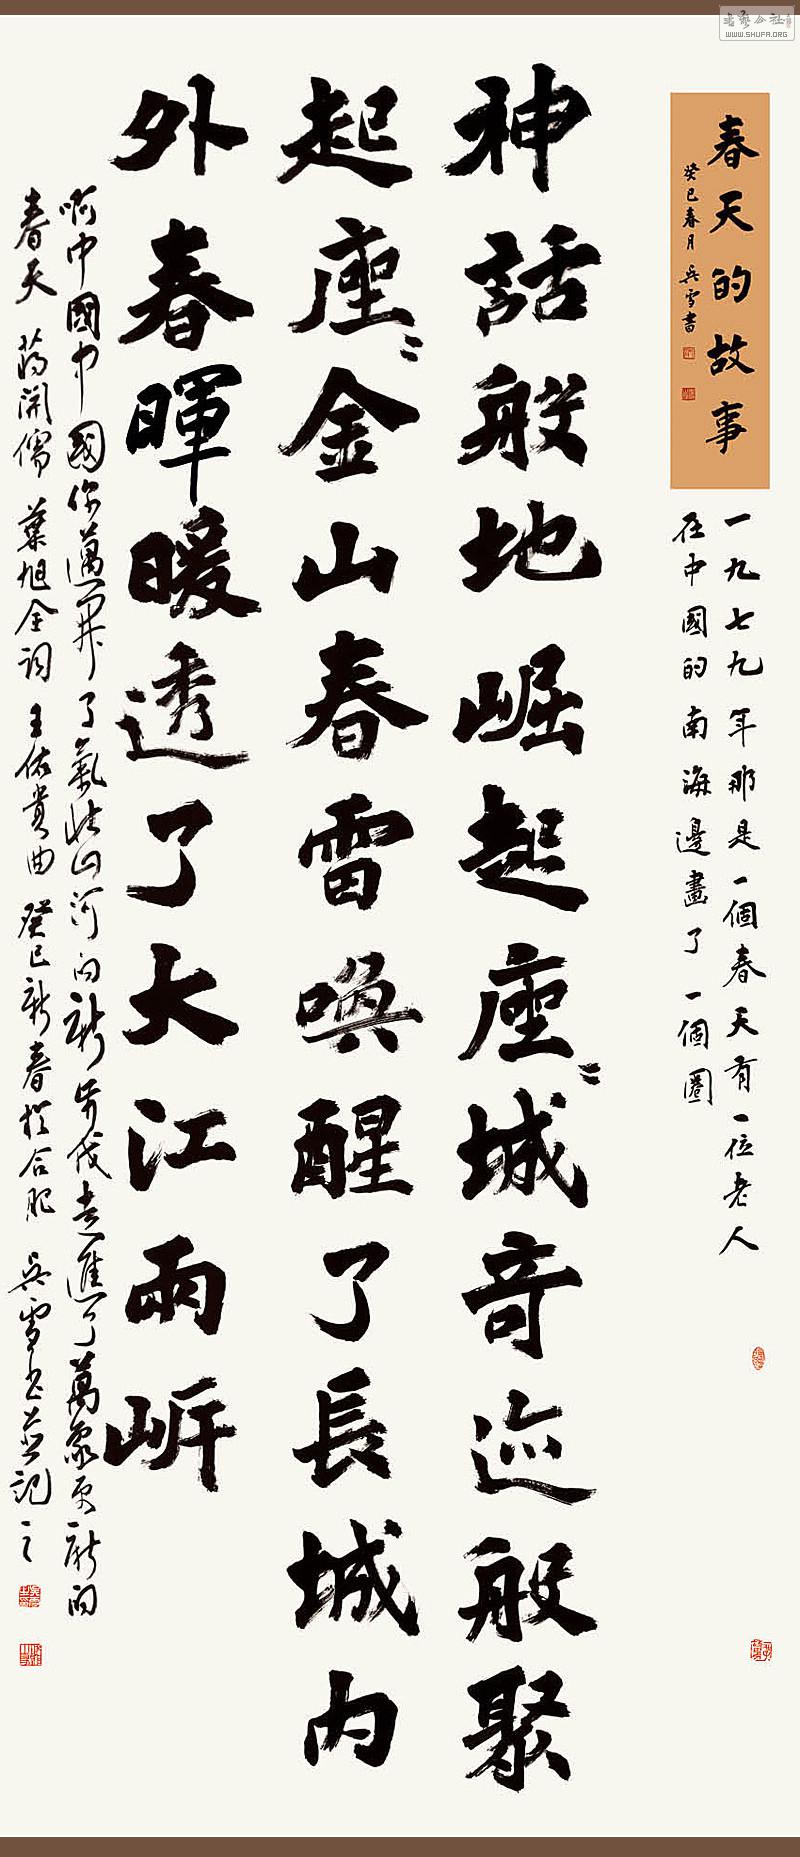 春天的故事
癸巳春月 吳雪書
一九七九年那是一個春天有一位老人
在中國的南海邊畫了一個圈
神話般地崛起座〻城奇迹般聚
起座〻金山春雷喚醒了長城內
外春暉暖透了大江兩岍
啊中國中國你邁開了氣壯山河的新步伐走進了萬象更新的
春天 蔣開儒 葉旭全詞 王佑貴曲 癸巳新春於合肥 吳雪書並記之
書藝公社
WWW.SHUFA.ORG